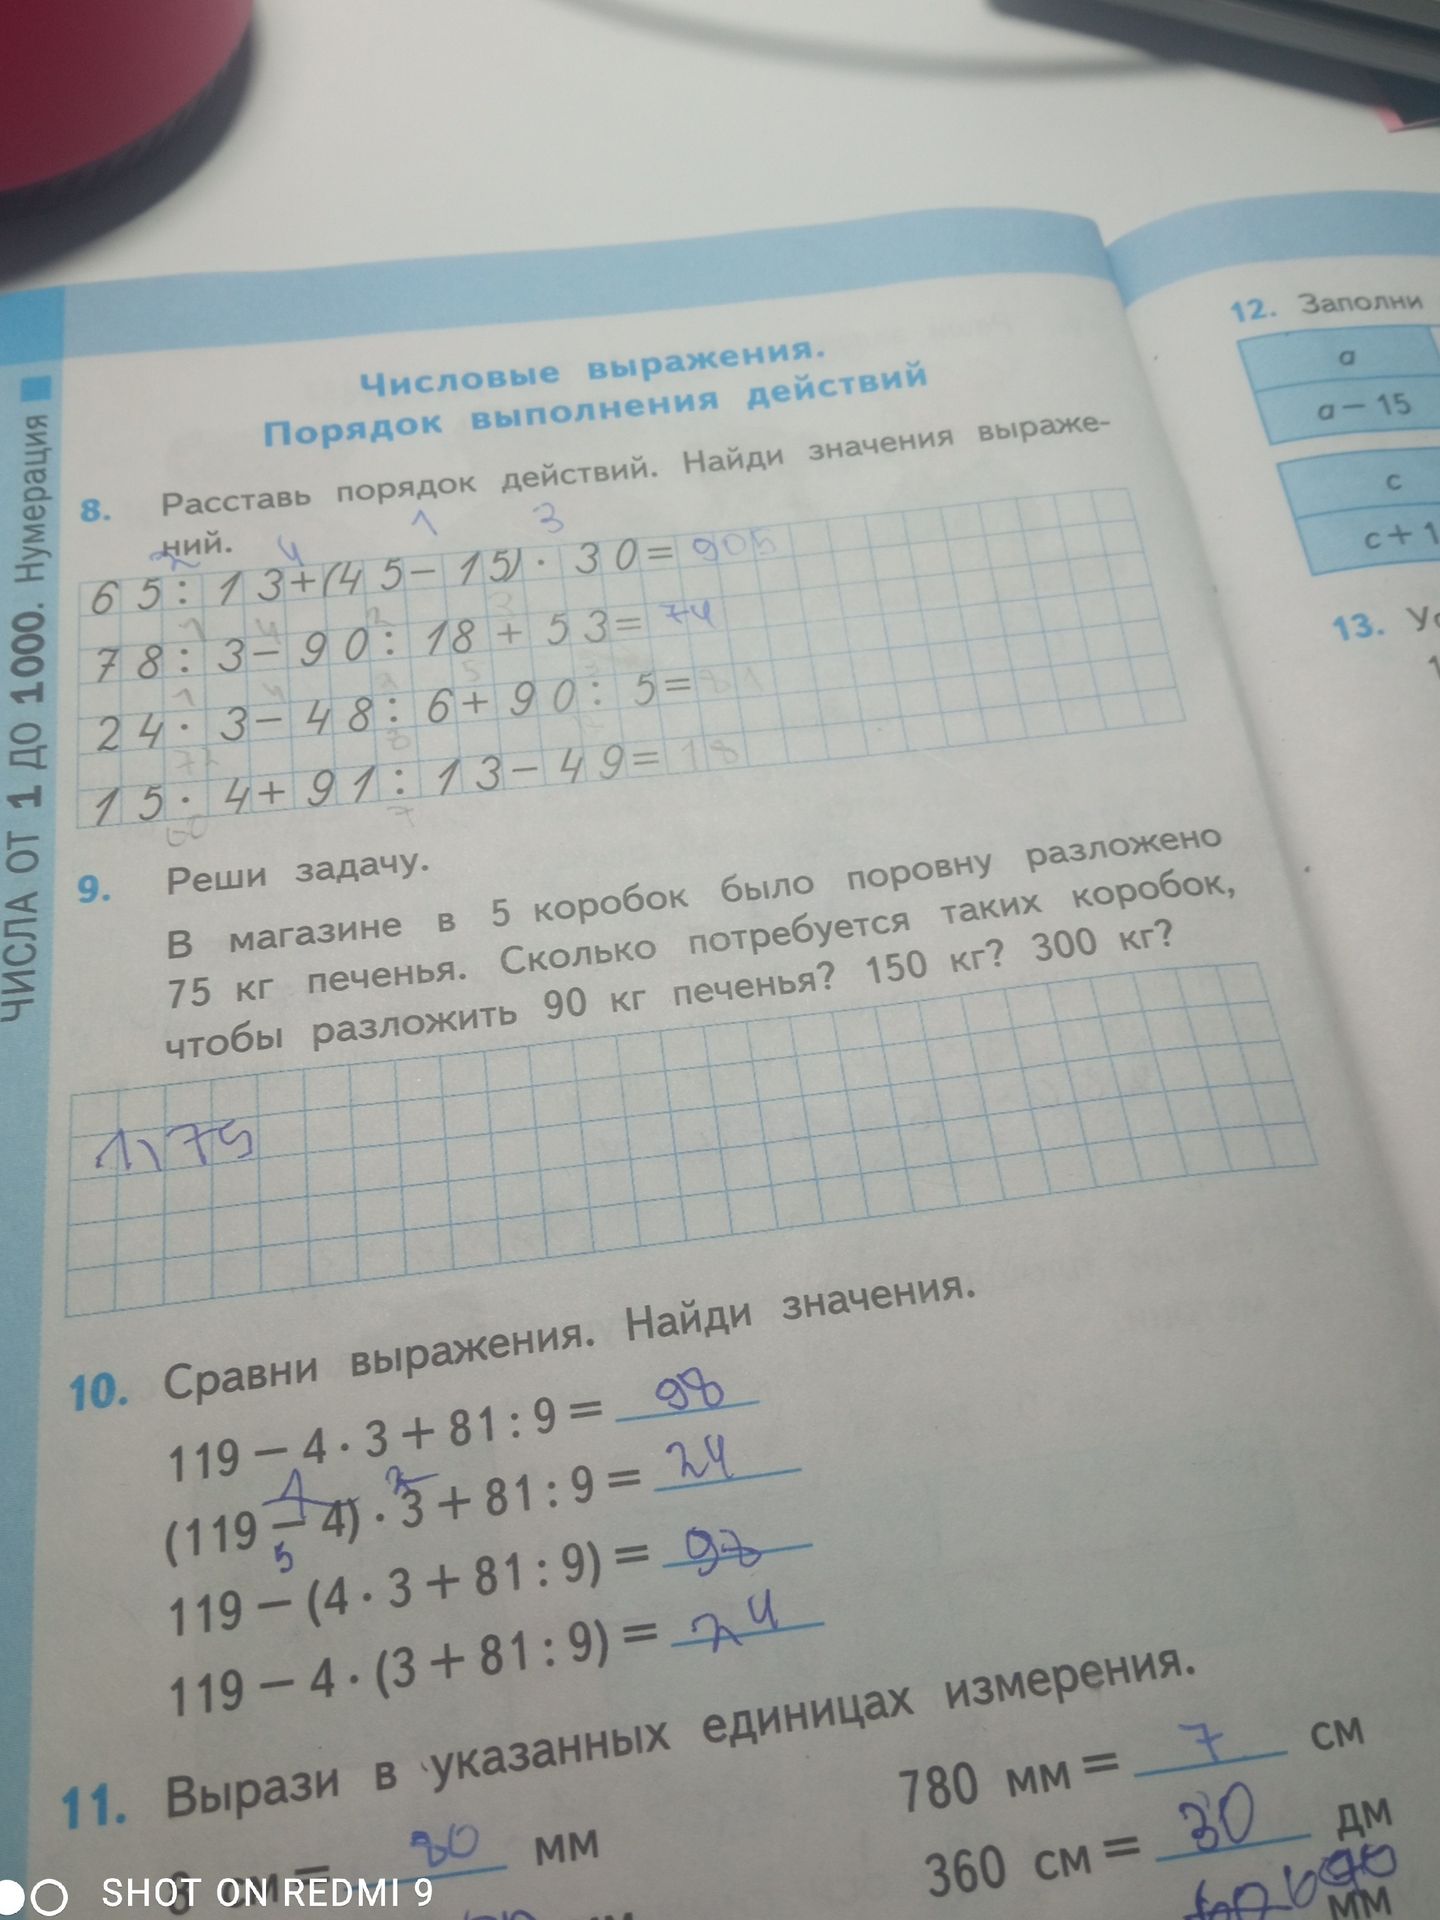 ЧИСЛА ОТ 1 ДО 1000. Нумерация
Числовые выражения.
Порядок выполнения действий
8. Расставь порядок действий. Найди значения выраже-
ний.
2 4 1 3
65 : 13 + (45 − 15) · 30 = 905
1 4 2 3
78 : 3 − 90 : 18 + 53 = 74
1 4 2 5 3
24 · 3 − 48 : 6 + 90 : 5 =
72 8
15 · 4 + 91 : 13 − 49 = 18
60 7
9. Реши задачу.
В магазине в 5 коробок было поровну разложено
75 кг печенья. Сколько потребуется таких коробок,
чтобы разложить 90 кг печенья? 150 кг? 300 кг?
1) 75
10. Сравни выражения. Найди значения.
119 − 4 · 3 + 81 : 9 = 98
(119 − 4) · 3 + 81 : 9 = 24
5
119 − (4 · 3 + 81 : 9) =
119 − 4 · (3 + 81 : 9) = 24
11. Вырази в указанных единицах измерения.
780 мм = 7 см
см = 80 мм
360 см = 30 дм
мм
12. Заполни
a
a − 15
c
c + 1
13.
SHOT ON REDMI 9